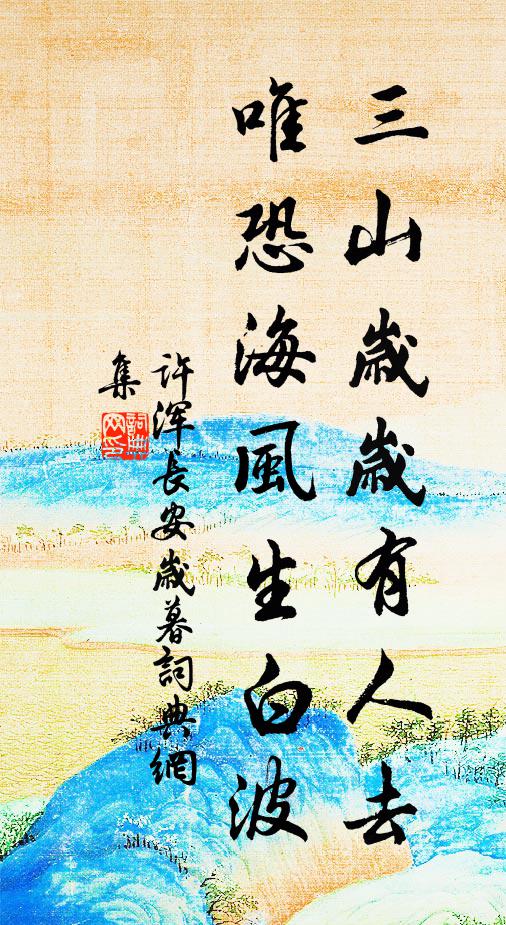 三山歲歲有人去
唯恐海風生白波
許渾長安歲暮詞典網
集
詞典
网印